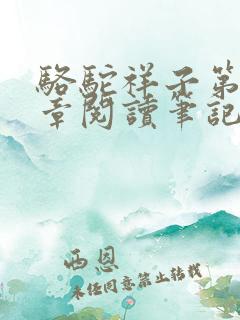 駱駝祥子第
章閱讀筆記
西恩
未经同意禁止转载